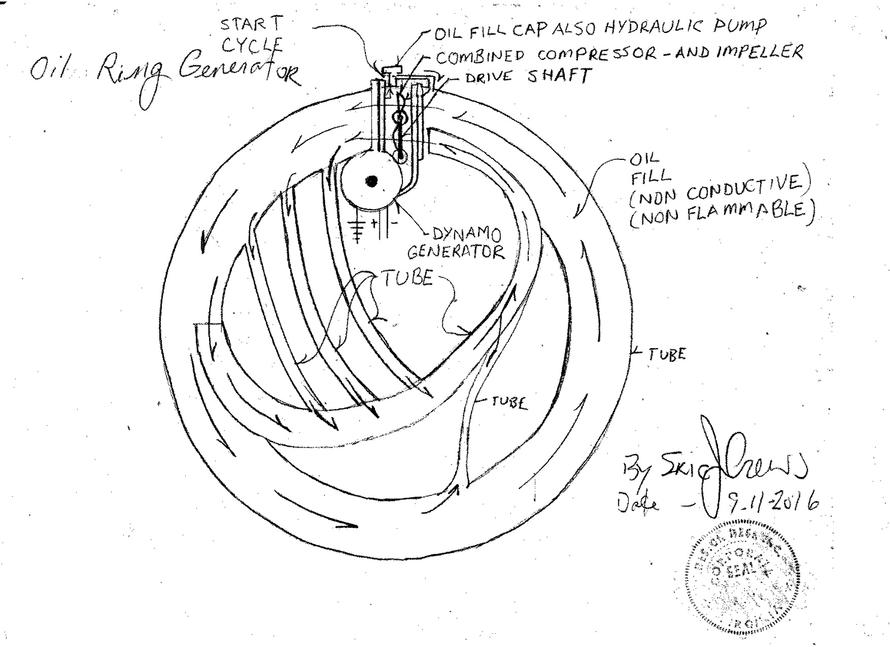 START
CYCLE
Oil Ring Generator
OIL FILL CAP ALSO HYDRAULIC PUMP
COMBINED COMPRESSOR - AND IMPELLER
DRIVE SHAFT
OIL
FILL
(NON CONDUCTIVE)
(NON FLAMMABLE)
+ -
DYNAMO
GENERATOR
TUBE
TUBE
TUBE
By Skig Crews
Date - 9-11-2016
CORPORATE
SEAL